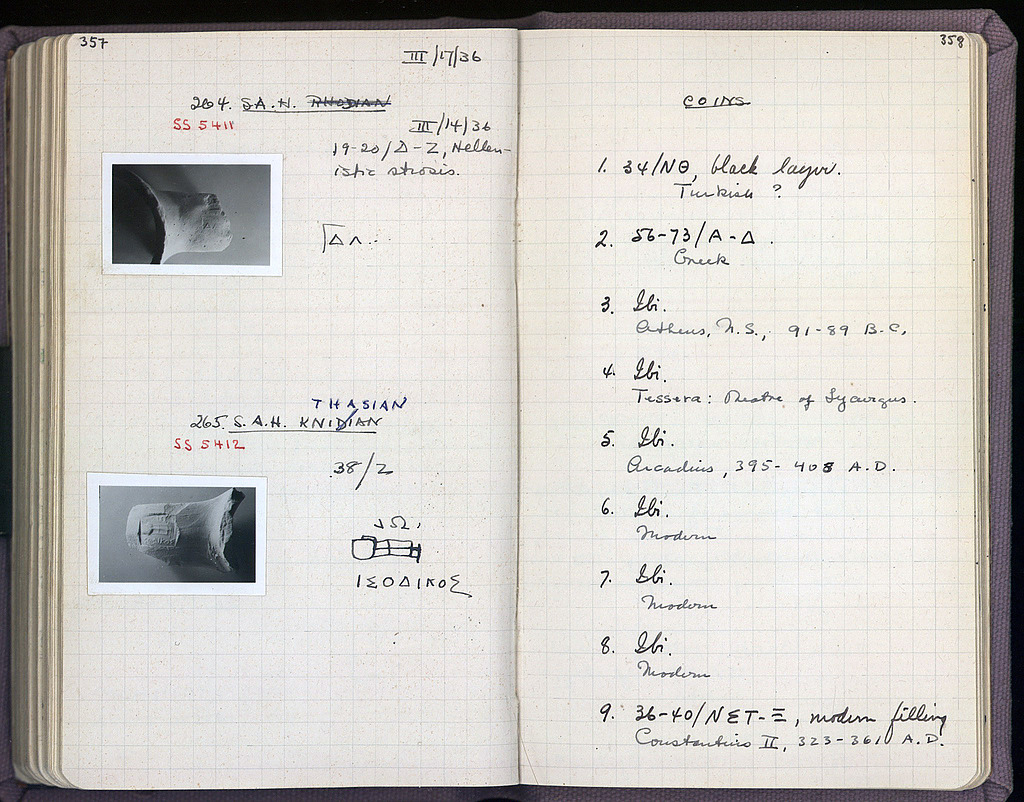 357
III/17/36
264. S.A.H. RHODIAN
SS 5411
III/14/36
19-20/Δ-Ζ, Hellen-
istic strosis.
ΔΛ..
THASIAN
265. S.A.H. KNIDIAN
SS 5412
38/Ζ
ΙΣΟΔΙΚΟΣ
358
COINS
1. 34/ΝΘ, black layer.
Turkish ?
2. 56-73/Α-Δ.
Greek
3. Ibi.
Athens, N.S., 91-89 B.C.
4. Ibi.
Tessera: Theatre of Lycurgus.
5. Ibi.
Arcadius, 395-408 A.D.
6. Ibi.
Modern
7. Ibi.
Modern
8. Ibi.
Modern
9. 36-40/ΝΣΤ-Ξ, modern filling
Constantius II, 323-361 A.D.